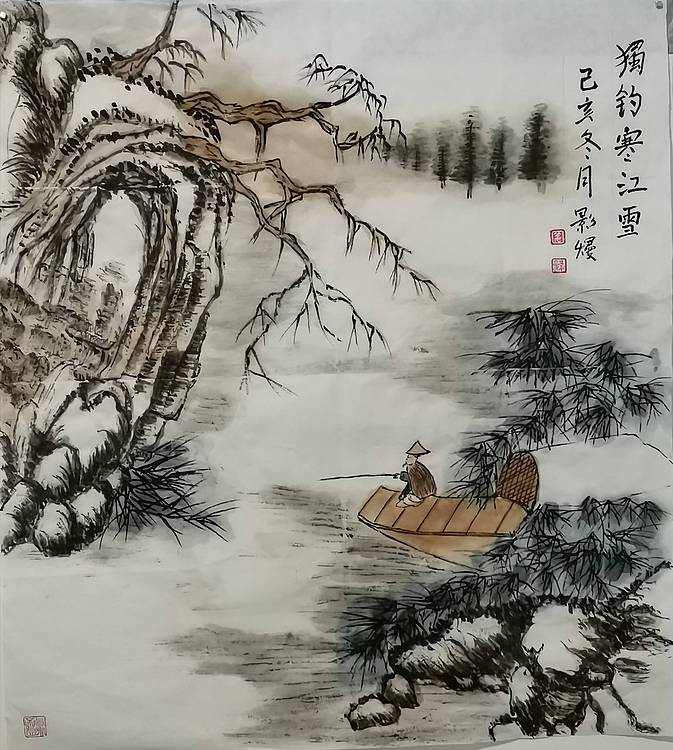 獨釣寒江雪
己亥冬月 影熳